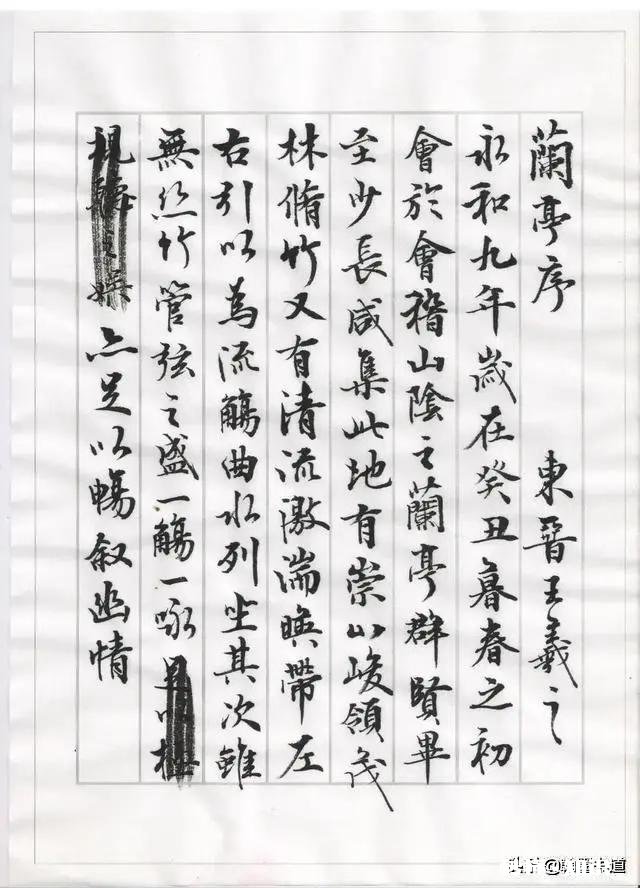 蘭亭序 東晉王羲之
永和九年歲在癸丑暮春之初
會於會稽山陰之蘭亭群賢畢
至少長咸集此地有崇山峻領茂
林脩竹又有清流激湍暎帶左
右引以為流觴曲水列坐其次雖
無絲竹管弦之盛一觴一詠
亦足以暢敘幽情